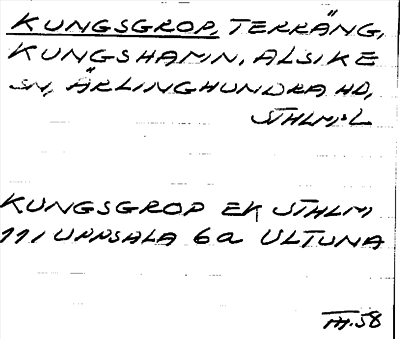 KUNGSGROP, TERRÄNG,
KUNGSHAMN, ALSIKE
SN, ÄRLINGHUNDRA HD,
STHLM:L
KUNGSGROP EK STHLM
111 UPPSALA 6a ULTUNA
TH.58